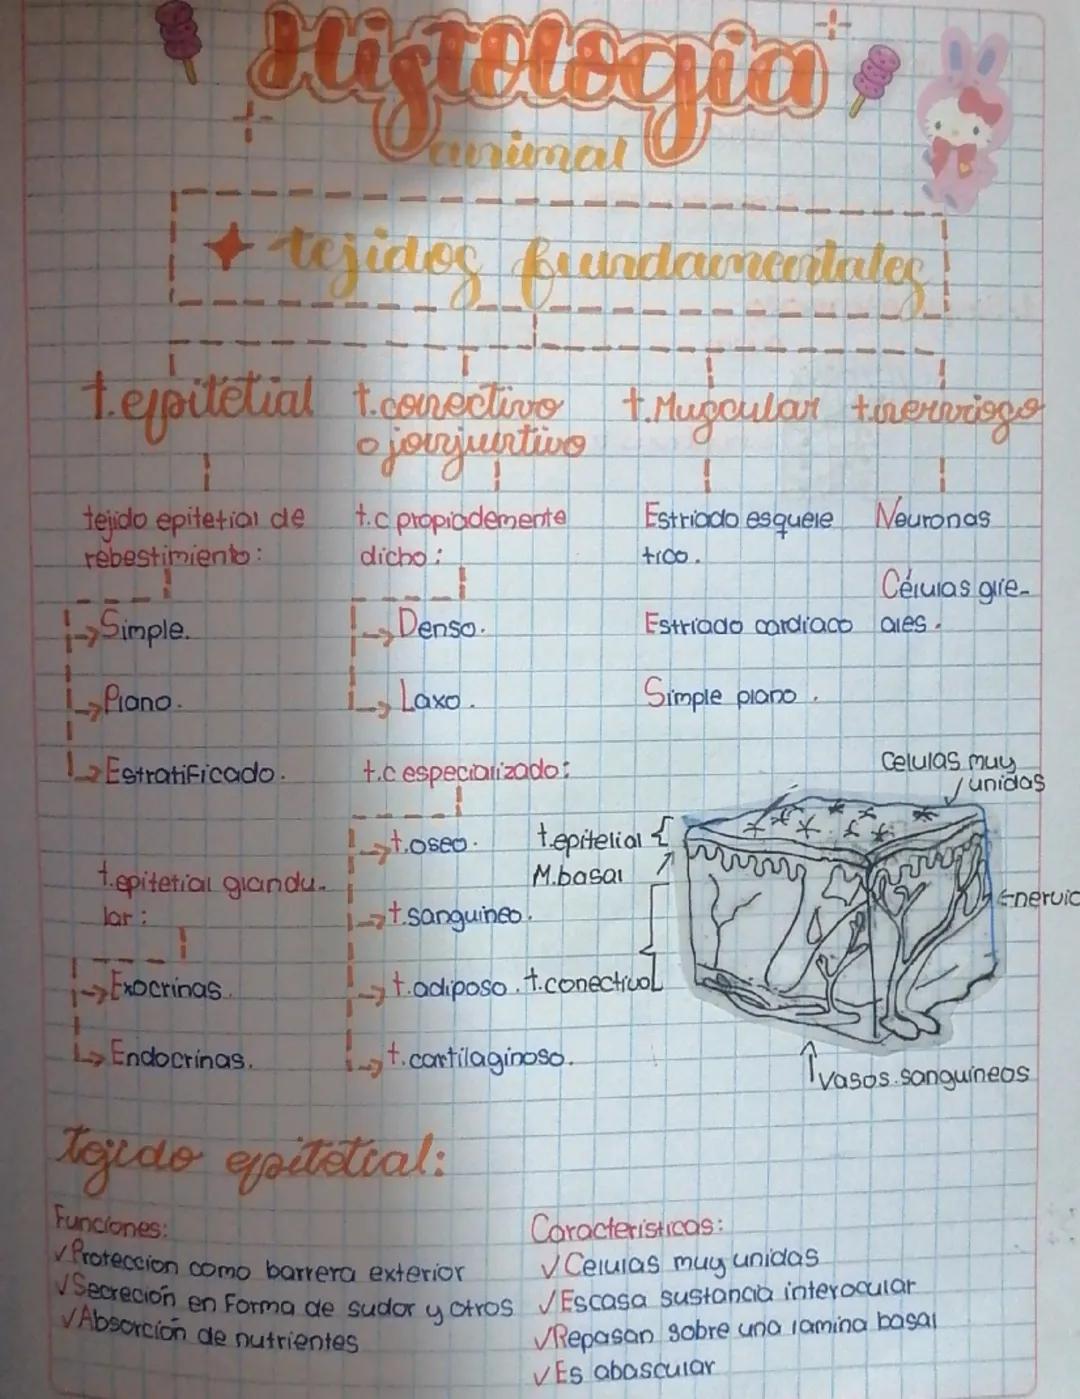 Histologia
animal
tejidos fundamentales
t.epitetial
t.conectivo
o jonjuntivo
t.Muscular
t.nervioso
tejido epitetial de
rebestimiento:
Simple.
Plano.
Estratificado.
t.epitetial glandu-
lar:
Exocrinas.
Endocrinas.
t.c propiademente
dicho:
Denso.
Laxo.
t.c especializado:
t.oseo.
t.sanguineo.
t.adiposo.
t.cartilaginoso.
Estriado esquele
tico.
Estriado cardiaco
Simple plano.
Neuronas
Células glie-
ales.
Celulas muy
unidas
t.epitelial
M.basal
t.conectivo
nervio
vasos.sanguíneos
tejido epitetial:
Funciones:
✓Proteccion como barrera exterior
✓Secreción en Forma de sudor y otros
✓Absorción de nutrientes
Caracteristicas:
✓Celulas muy unidas
✓Escasa sustancia interocular
✓Repasan sobre una lamina basal
✓Es abascular